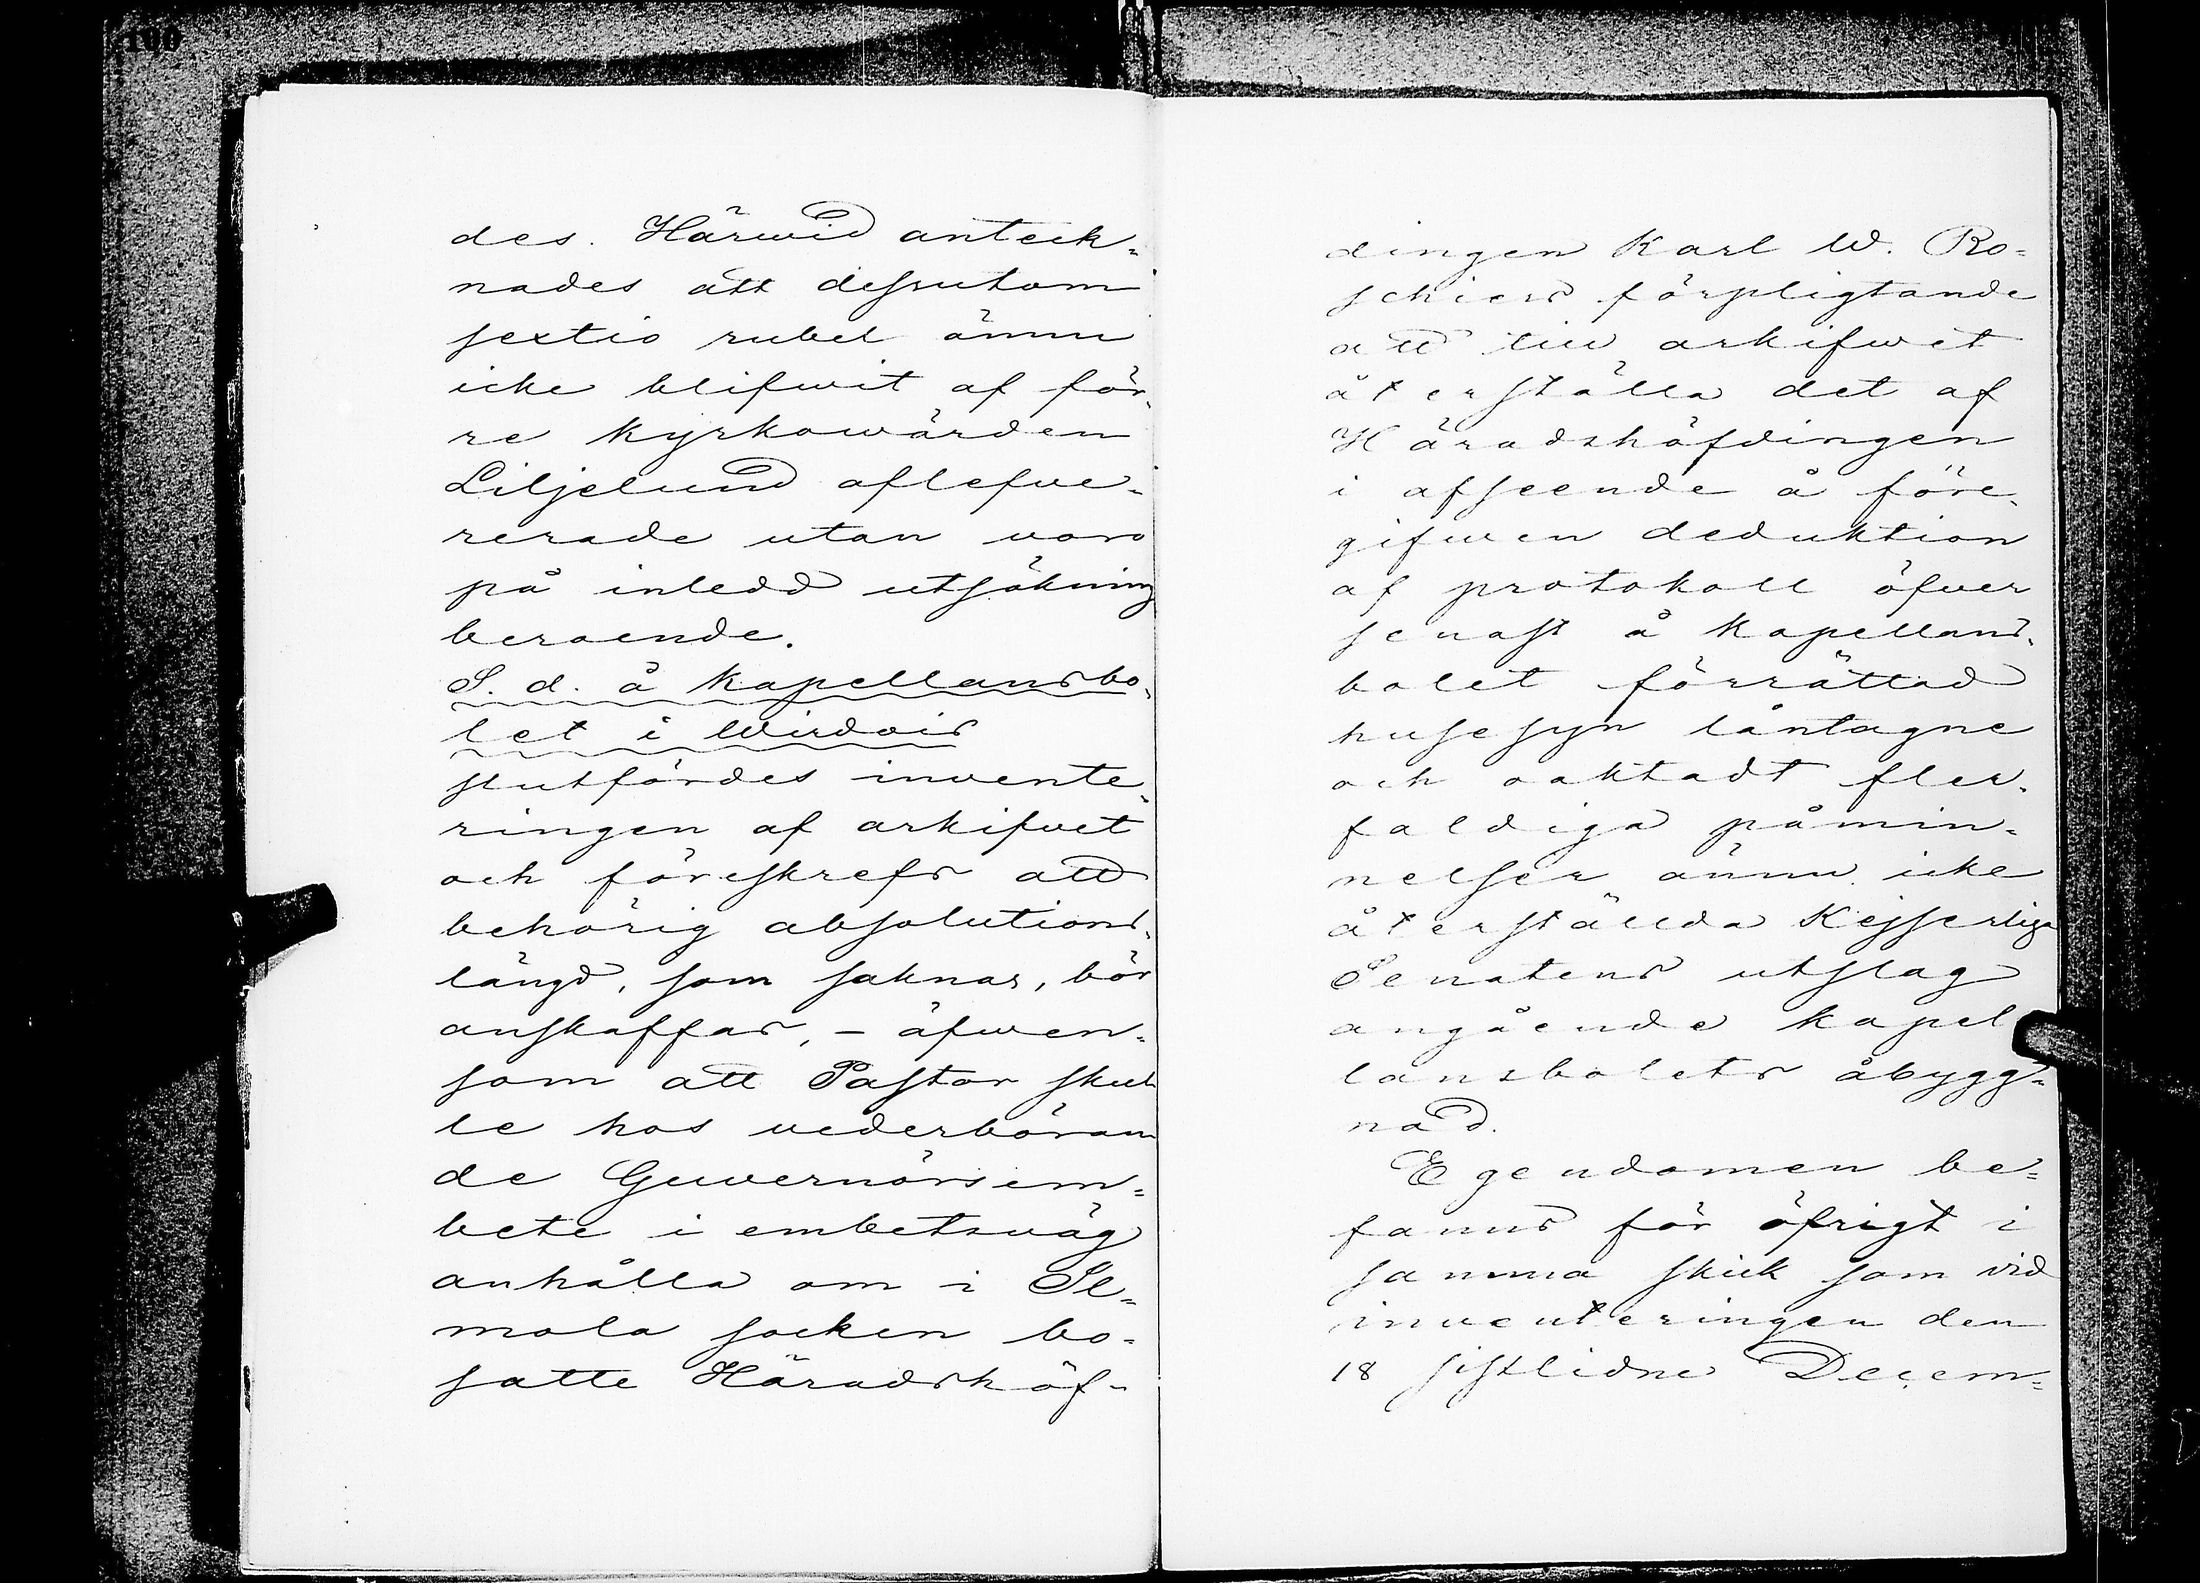 100
des. Härwid anteck-
nades att dessutom
sextio rubel ännu
icke blifwit af för-
re kyrkowärden
Liljelund aflefve-
rerade utan voro
på inledd utsökning
beroende.
S. d. å kapellansbo-
let i Wirdois
slutfördes invente-
ringen af arkifvet
och föreskrefs att
behörig absolutions-
längd, som saknas, bör
anskaffas, – äfwen-
som att Pastor skul-
le hos vederböran-
de Guvernörsem-
bete i embetsväg
anhålla om i Il-
mola socken bo-
satte Häradshöf-
dingen Karl W. Ro-
schiers förpligtande
att till arkifwet
återställa det af
Häradshöfdingen
i afseende å före-
gifwen deduktion
af protokoll öfver
senast å kapellans-
bolet förrättad
husesyn låntagne
och oaktadt fler-
faldiga påmin-
nelser ännu icke
återställda Kejserliga
Senatens utslag
angående kapel-
lansbolets åbygg-
nad.
Egendomen be-
fanns för öfrigt i
samma skick som vid
inventeringen den
18 sistlidne Decem-